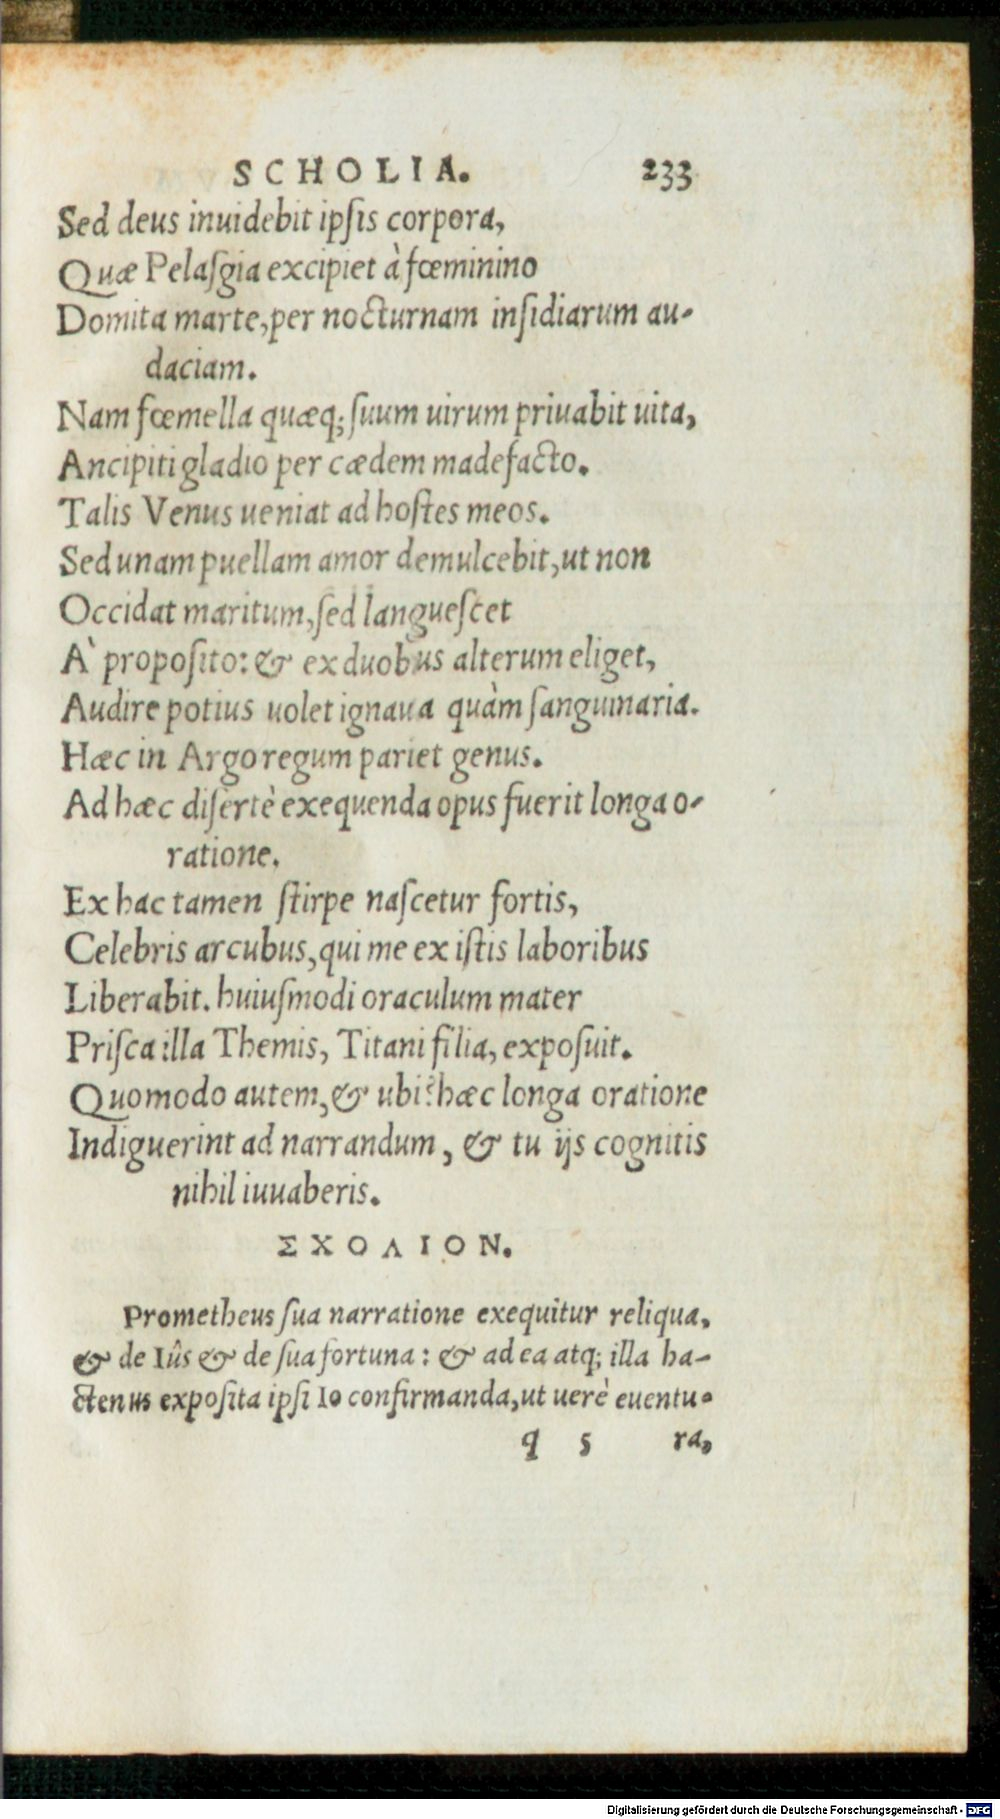 SCHOLIA. 233
Sed deus inuidebit ipſis corpora,
Quæ Pelaſgia excipiet à fœminino
Domita marte, per nocturnam inſidiarum au-
daciam.
Nam fœmella quæq; ſuum uirum priuabit uita,
Ancipiti gladio per cædem madefacto.
Talis Venus ueniat ad hoſtes meos.
Sed unam puellam amor demulcebit, ut non
Occidat maritum, ſed langueſcet
À propoſito: & ex duobus alterum eliget,
Audire potius uolet ignaua quàm ſanguinaria.
Hæc in Argo regum pariet genus.
Ad hæc diſertè exequenda opus fuerit longa o-
ratione.
Ex hac tamen ſtirpe naſcetur fortis,
Celebris arcubus, qui me ex iſtis laboribus
Liberabit. huiuſmodi oraculum mater
Priſca illa Themis, Titani filia, expoſuit.
Quomodo autem, & ubi? hæc longa oratione
Indiguerint ad narrandum, & tu ijs cognitis
nihil iuuaberis.
ΣΧΟΛΙΟΝ.
Prometheus ſua narratione exequitur reliqua,
& de Iûs & de ſua fortuna: & ad ea atq; illa ha-
ctenus expoſita ipſi Io confirmanda, ut uerè euentu-
q 5 ra,
Digitalisierung gefördert durch die Deutsche Forschungsgemeinschaft - DFG